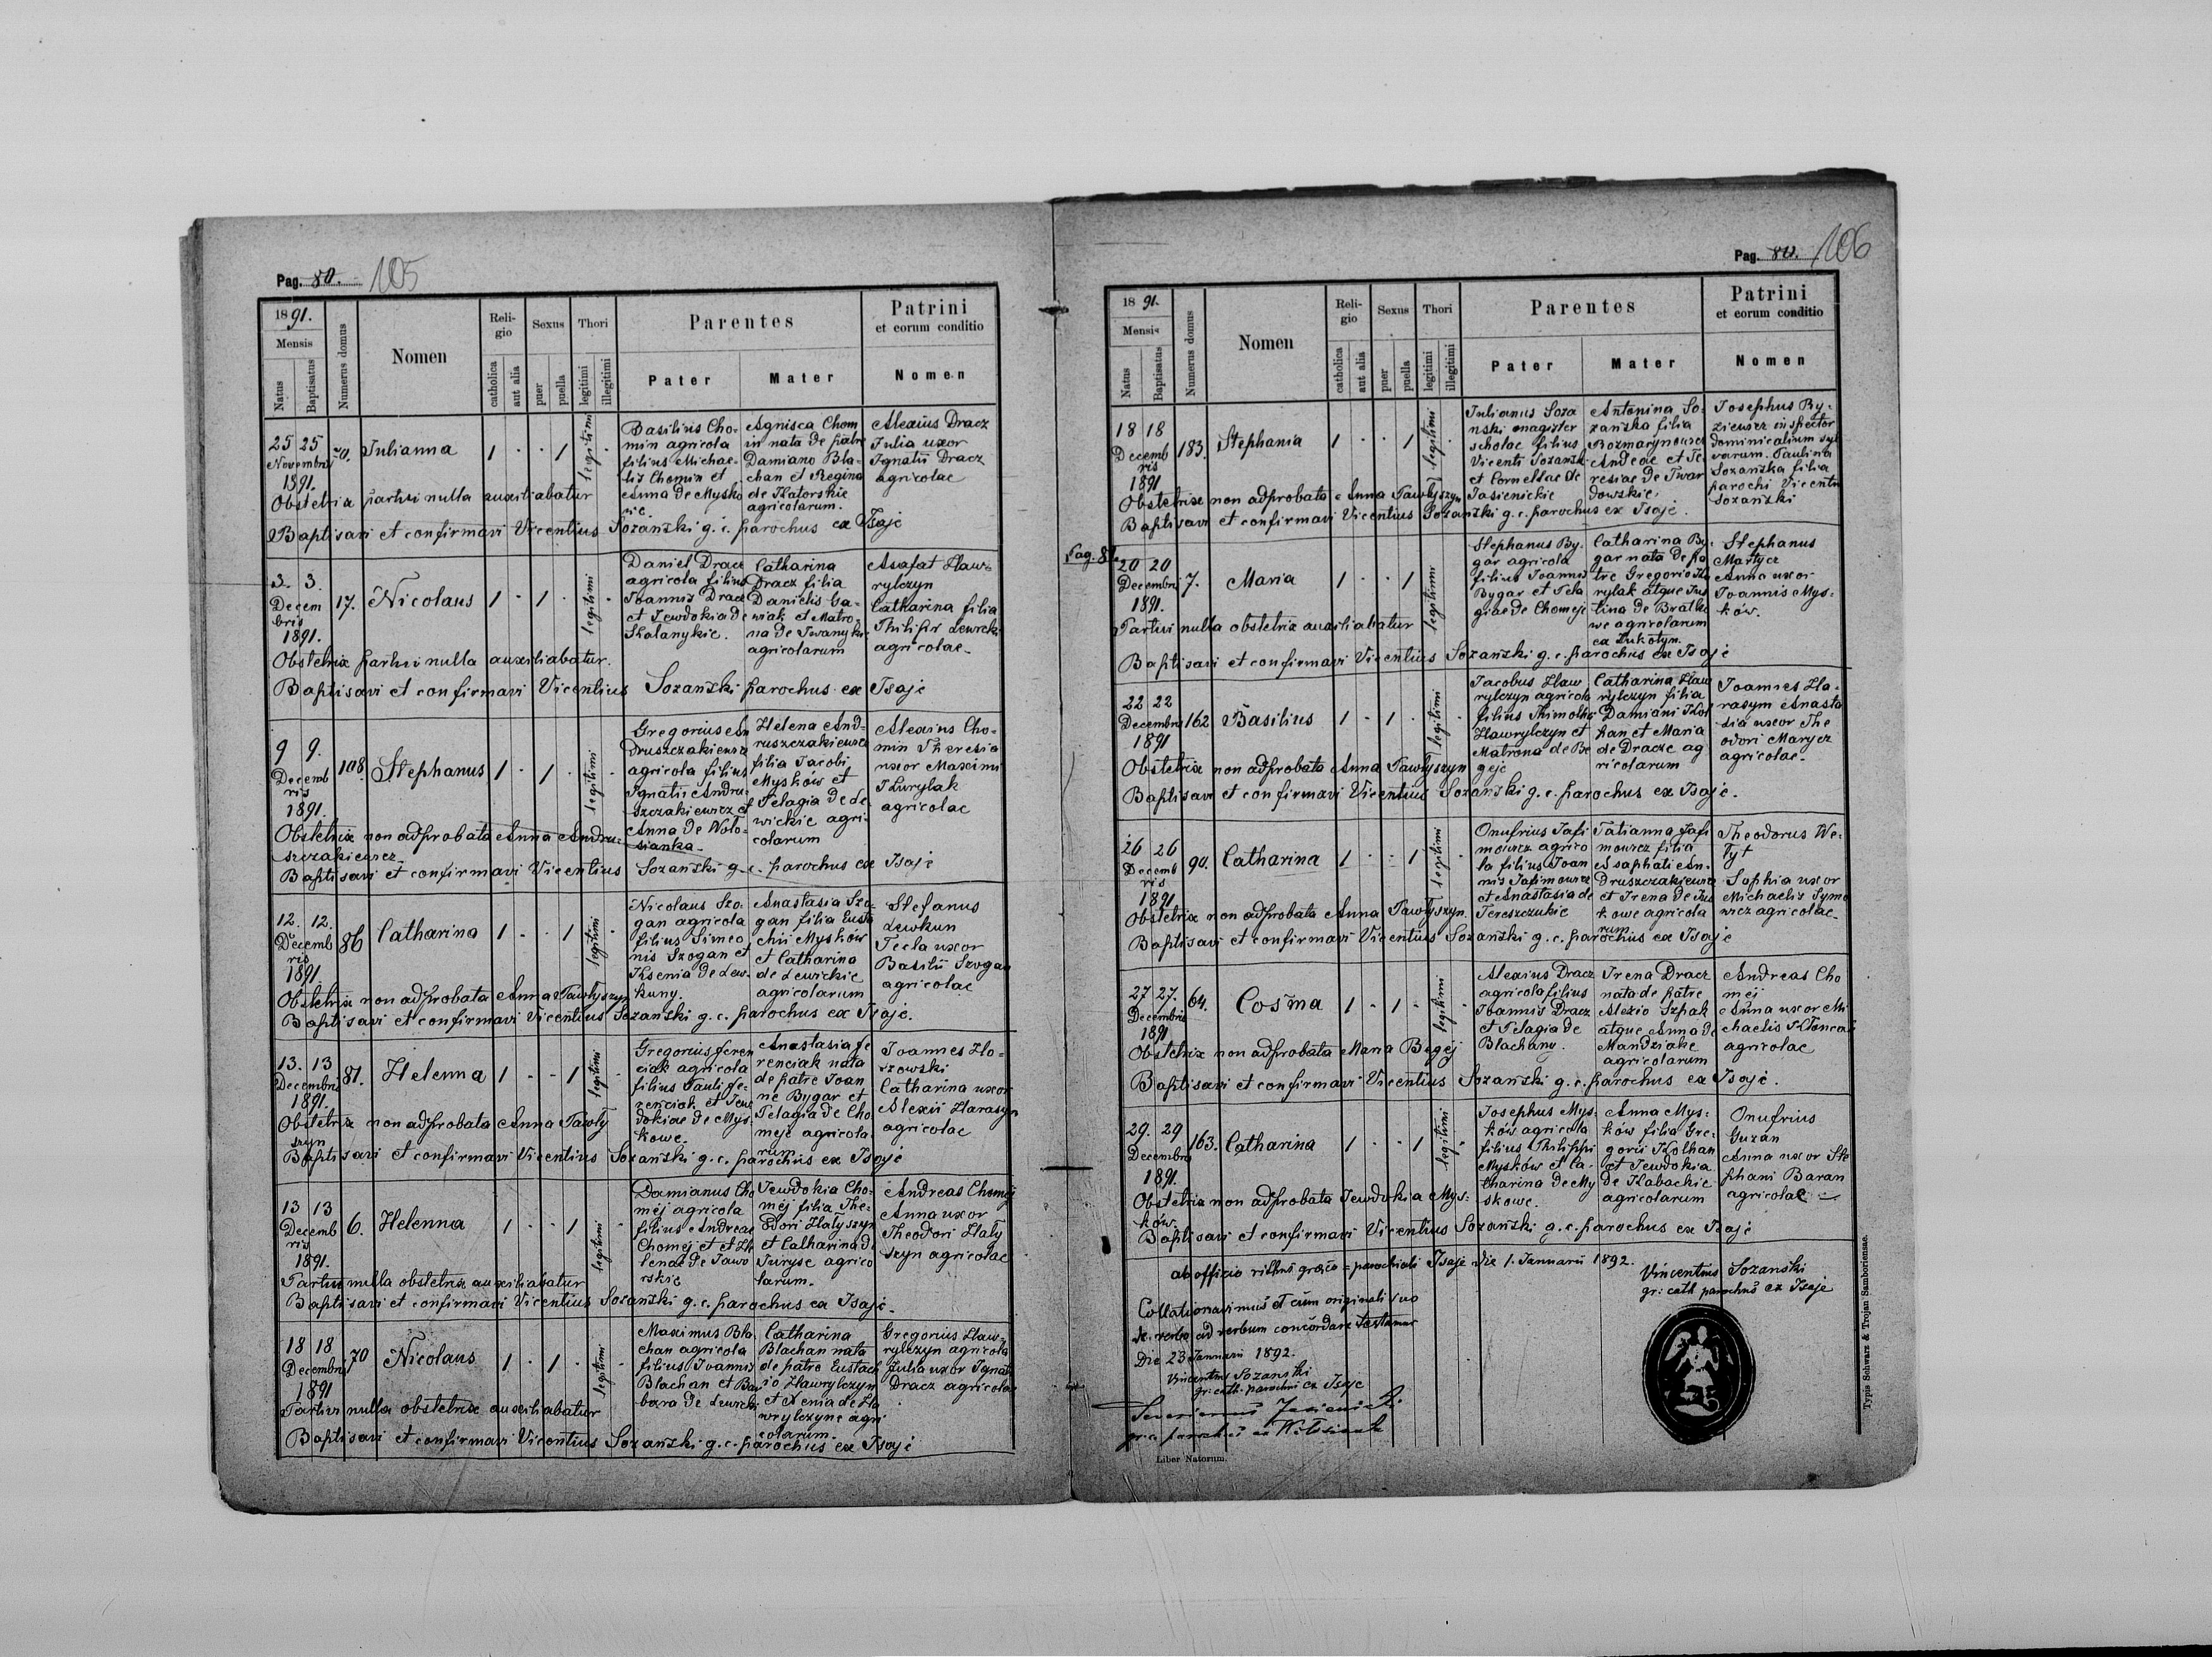 Pag. 80. 105
1891.
Mensis
Natus
Baptisatus
Numerus domus
Nomen
Religio
catholica
aut alia
Sexus
puer
puella
Thori
legitimi
illegitimi
Parentes
Pater
Mater
Patrini
et eorum conditio
Nomen
25 25
Novembris
1891.
70.
Julianna
1 · · 1 legitimi ·
Basilius Cho-
min agricola
filius Michae-
lis Chomin et
Anna de Mysko
wie.
Agnisca Chom
in nata de patre
Damiano Bla-
chan et Regina
de Katorskie
agricolarum.
Alexius Dracz
Julia uxor
Ignatii Dracz
agricolae
Obstetrix partui nulla auxiliabatur
Baptisavi et confirmavi Vicentius Sozański g. c. parochus ex Isaje
3. 3.
Decem
bris
1891.
17.
Nicolaus
1 · 1 · legitimi ·
Daniel Dracz
agricola filius
Joannis Dracz
et Jewdokia de
Kalanykie.
Catharina
Dracz filia
Danielis Ga-
wiak et Matro-
na de Iwanyki
agricolarum
Asafat Haw-
rylczyn
Catharina filia
Philipi Lewicki
agricolae
Obstetrix partui nulla auxiliabatur.
Baptisavi et confirmavi Vicentius Sozański parochus ex Isaje
9 9.
Decemb
ris
1891.
108.
Stephanus
1 · 1 · legitimi ·
Gregorius An
druszczakiewicz
agricola filius
Ignatii Andru-
szczakiewicz et
Anna de Woło-
sianka.
Helena And-
ruszczakiewicz
filia Jacobi
Mysków et
Pelagia de Le-
wickie agri-
colarum
Alexius Cho-
min Theresia
uxor Maximi
Kurylak
agricolae
Obstetrix non adprobata Anna Andru-
szczakiewicz
Baptisavi et confirmavi Vicentius Sozański g. c. parochus ex Isaje
12. 12.
Decemb
ris
1891.
86
Catharina
1 · · 1 legitimi ·
Nicolaus Szo-
gan agricola
filius Simeo
nis Szogan et
Ksenia de Lew-
kuny.
Anastasia Szo-
gan filia Eusta
chii Mysków
et Catharina
de Lewickie
agricolarum
Stefanus
Lewkun
Tecla uxor
Basilii Szogan
agricolae
Obstetrix non adprobata Anna Pawłyszyn
Baptisavi et confirmavi Vicentius Sozański g. c. parochus ex Isaje.
13. 13
Decembris
1891.
81.
Helenna
1 · · 1 legitimi
Gregorius feren
ciak agricola
filius Pauli fe-
renciak et Jew
dokiae de Mys-
kowe.
Anastasia fe
renciak nata
de patre Joan
ne Bygar et
Pelagia de Cho
meje agricola-
rum
Joannes Ho-
szowski
Catharina uxor
Alexii Harasym
agricolae
Obstetrix non adprobata Anna Pawły
szyn
Baptisavi et confirmavi Vicentius Sozański g. c. parochus ex Isaje
13 13
Decemb
ris
1891.
6.
Helenna
1 · · 1 legitimi ·
Damianus Cho
mej agricola
filius Andreae
Chomej et He
lenae de Jawo
rskie
Jewdokia Cho-
mej filia The-
odori Hałyszyn
et Catharina de
Juryse agrico
larum.
Andreas Chomej
Anna uxor
Theodori Hały
szyn agricolae
Partui nulla obstetrix auxiliabatur
Baptisavi et confirmavi Vicentius Sozański g. c. parochus ex Isaje.
18 18
Decembris
1891
70
Nicolaus
1 · 1 · legitimi ·
Maximus Bla
chan agricola
filius Joannis
Blachan et Bar
bara de Lewicki
Catharina
Blachan nata
de patre Eustach
io Hawrylczyn
et Xenia de Ha
wrylczyne agri
colarum.
Gregorius Haw-
rylczyn agricola
Julia uxor Ignatii
Dracz agricolae
Partui nulla obstetrix auxiliabatur
Baptisavi et confirmavi Vicentius Sozański g. c. parochus ex Isaje
Pag. 80. 106
1891.
Mensis
Natus
Baptisatus
Numerus domus
Nomen
Religio
catholica
aut alia
Sexus
puer
puella
Thori
legitimi
illegitimi
Parentes
Pater
Mater
Patrini
et eorum conditio
Nomen
18 18
Decemb
ris
1891
183.
Stephania
1 · · 1 legitimi ·
Julianus Soza
nski magister
scholae filius
Vicenti Sozanski
et Corneliae de
Jasienickie
Antonina So-
zańska filia
Rozmarynowicz
Andeae et Te
resiae de Twar
dowskie.
Josephus By-
ziewicz inspector
dominicalium syl
varum. Paulina
Sozańska filia
parochi Vicentii
Sozański
Obstetrix non adprobata Anna Pawłyszyn
Baptisavi et confirmavi Vicentius Sozanski g. c. parochus ex Isaje.
Pag. 81.
20 20
Decembris
1891.
7.
Maria
1 · · 1 legitimi
Stephanus By-
gar agricola
filius Joannis
Bygar et Pela
giae de Chomeje
Catharina By-
gar nata de pa
tre Gregorio Ku
rylak atque Jus
tina de Bratko
we agricolarum
ex Łukotyn.
Stephanus
Martycz
Anna uxor
Joannis Mys-
ków.
Partui nulla obstetrix auxiliabatur
Baptisavi et confirmavi Vicentius Sozański g. c. parochus ex Isaje
22 22
Decembris
1891
162
Basilius
1 · 1 · legitimi ·
Jacobus Haw
rylczyn agricola
filius Thimothei
Hawrylczyn et
Matrona de Be
geje
Catharina Haw
rylczyn filia
Damiani Kol
han et Maria
de Dracze ag
ricolarum
Joannes Ha-
rasym Anasta
sia uxor The
odori Marycz
agricolae.
Obstetrix non adprobata Anna Pawłyszyn
Baptisavi et confirmavi Vicentius Sozański g. c. parochus ex Isaje.
26 26
Decemb
ris
1891
90.
Catharina
1 · · 1 legitimi ·
Onufrius Jafi
mowicz agrico
la filius Joan
nis Jafimowicz
et Anastasia de
Tereszczukie
Tatianna Jafi
mowicz filia
Assaphati An-
druszczakiewicz
et Irena de Jus
kowe agricola
rum
Theodorus We-
łyt
Sophia uxor
Michaelis Symo
wicz agricolae
Obstetrix non adprobata Anna Pawłyszyn.
Baptisavi et confirmavi Vicentius Sozański g. c. parochus ex Isaje
27 27.
Decembris
1891
64.
Cosma
1 · 1 · legitimi ·
Alexius Dracz
agricola filius
Joannis Dracz
et Pelagia de
Blachany.
Irena Dracz
nata de patre
Alexio Szpak
atque Anna de
Mandziake
agricolarum
Andreas Cho
mej
Anna uxor Mi
chaelis
agricolae
Obstetrix non adprobata Maria Begej
Baptisavi et confirmavi Vicentius Sozański g. c. parochus ex Isaje.
29. 29
Decembris
1891.
163.
Catharina
1 · · 1 legitimi ·
Josephus Mys-
ków agricola
filius Philippi
Mysków et Ca-
tharina de My
skowe.
Anna Mys-
ków filia Gre-
gorii Kolhan
et Jewdokia
de Kabackie
agricolarum
Onufrius
Guzan
Anna uxor Ste
phani Baran
agricolae
Obstetrix non adprobata Jewdokia Mys-
ków.
Baptisavi et confirmavi Vicentius Sozański g. c. parochus ex Isaje
ab officio rithus graeco-parochiali Isaje die 1. Januarii 1892.
Vincentius Sozanski
gr: cath parochus ex Isaje
Collationavimus et cum originali suo
de verbo ad verbum concordare testamur
Die 23 Januarii 1892.
Vincentius Sozanski
gr: cath. parochus ex Isaje
Liber Natorum.
Typis Schwarz & Trojan Samboriensae.